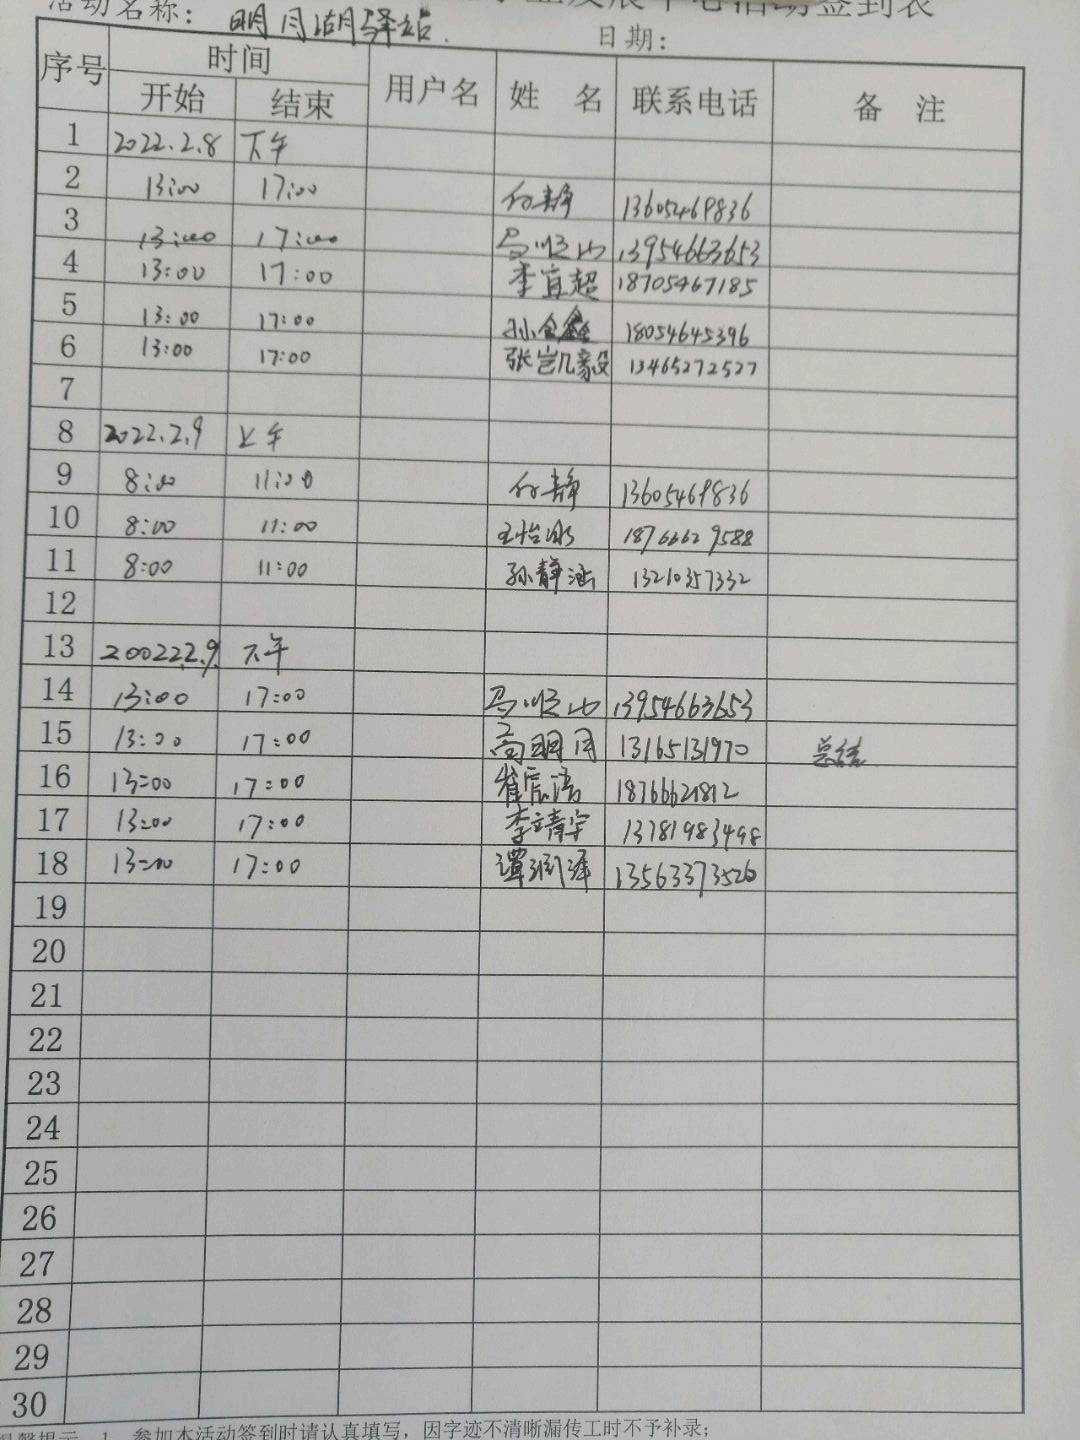 活动名称：明月湖驿站. 发展中心活动签到表
日期：
序号 时间 用户名 姓 名 联系电话 备 注
开始 结束
1 2022.2.8 下午
2 13:00 17:00 付静 13605469836
3 13:00 17:00 马顺山 13954663653
4 13:00 17:00 李宜超 18705467185
5 13:00 17:00 孙金鑫 18054645396
6 13:00 17:00 张岂凡毅 13465272527
7
8 2022.2.9 上午
9 8:00 11:00 付静 13605469836
10 8:00 11:00 王怡冰 18766629588
11 8:00 11:00 孙静涵 13210357332
12
13 200222.9. 下午
14 13:00 17:00 马顺山 13954663653
15 13:00 17:00 高明月 13165131970 总结
16 13:00 17:00 崔辰语 18766621812
17 13:00 17:00 李靖宇 13781983498
18 13:00 17:00 谭润泽 13563373526
19
20
21
22
23
24
25
26
27
28
29
30
温馨提示 1、参加本活动签到时请认真填写，因字迹不清晰漏传工时不予补录；